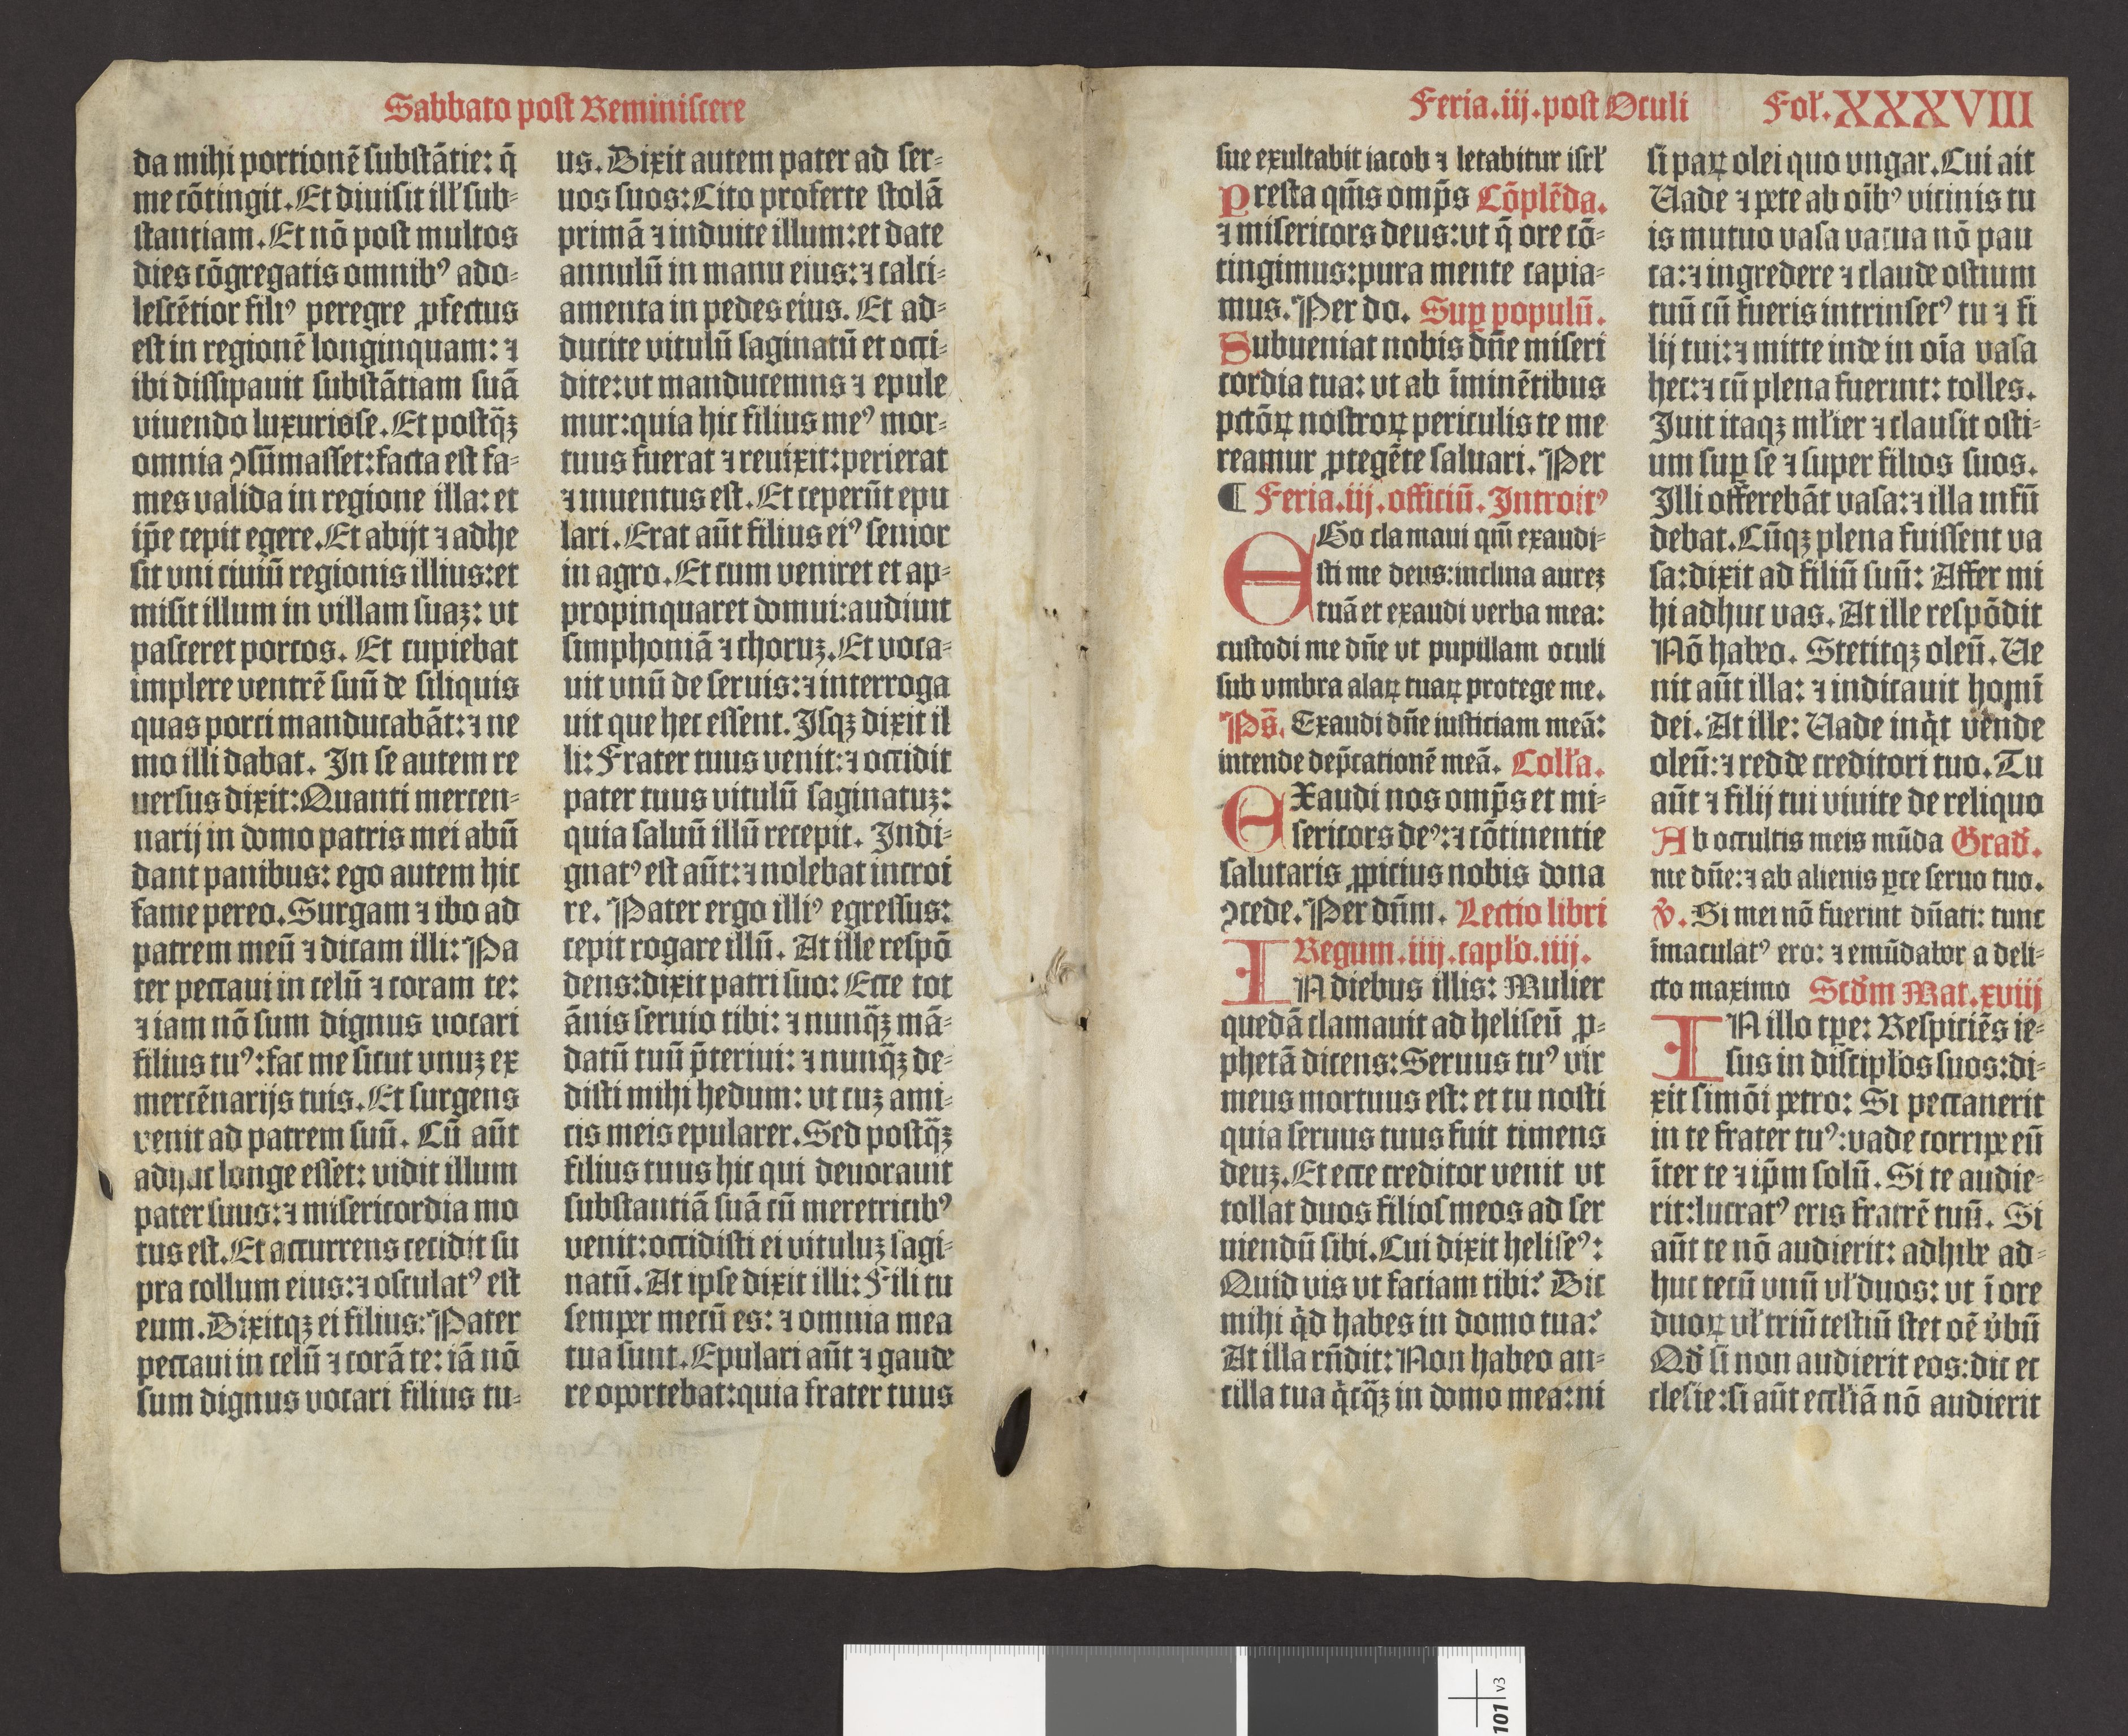 Sabbato post Reminiscere
da mihi portionē substātie: q̄
me cōtingit. Et diuisit ill' sub-
stantiam. Et nō post multos
dies cōgregatis omnibꝰ ado-
lescētior filiꝰ peregre ꝓfectus
est in regionē longinquam: ⁊
ibi dissipauit substātiam suā
viuendo luxuriose. Et postq̄ꝫ
omnia ꝯsūmasset: facta est fa-
mes valida in regione illa: et
ip̄e cepit egere. Et abijt ⁊ adhe
sit vni ciuiū regionis illius: et
misit illum in villam suaꝫ: vt
pasceret porcos. Et cupiebat
implere ventrē suū de siliquis
quas porci manducabāt: ⁊ ne
mo illi dabat. In se autem re
uersus dixit: Quanti mercen-
narij in domo patris mei abū
dant panibus: ego autem hic
fame pereo. Surgam ⁊ ibo ad
patrem meū ⁊ dicam illi: Pa
ter peccaui in celū ⁊ coram te:
⁊ iam nō sum dignus vocari
filius tuꝰ: fac me sicut vnuꝫ ex
mercēnarijs tuis. Et surgens
venit ad patrem suū. Cū aūt
adhuc longe esset: vidit illum
pater suus: ⁊ misericordia mo
tus est. Et accurrens cecidit su
pra collum eius: ⁊ osculatꝰ est
eum. Dixitqꝫ ei filius: Pater
peccaui in celū ⁊ corā te: iā nō
sum dignus vocari filius tu-
us. Dixit autem pater ad ser-
uos suos: Cito proferte stolā
primā ⁊ induite illum: et date
annulū in manu eius: ⁊ calci-
amenta in pedes eius. Et ad-
ducite vitulū saginatū et occi-
dite: vt manducemus ⁊ epule
mur: quia hic filius meꝰ mor-
tuus fuerat ⁊ reuixit: perierat
⁊ inuentus est. Et ceperūt epu
lari. Erat aūt filius eiꝰ senior
in agro. Et cum veniret et ap-
propinquaret domui: audiuit
simphoniā ⁊ choruꝫ. Et voca-
uit vnū de seruis: ⁊ interroga
uit que hec essent. Isqꝫ dixit il
li: Frater tuus venit: ⁊ occidit
pater tuus vitulū saginatuꝫ:
quia saluū illū recepit. Indi-
gnatꝰ est aūt: ⁊ nolebat introi
re. Pater ergo illiꝰ egressus:
cepit rogare illū. At ille respō
dens: dixit patri suo: Ecce tot
ānis seruio tibi: ⁊ nunq̄ꝫ mā-
datū tuū p̄teriui: ⁊ nunq̄ꝫ de-
disti mihi hedum: vt cuꝫ ami-
cis meis epularer. Sed postq̄ꝫ
filius tuus hic qui deuorauit
substantiā suā cū meretricibꝰ
venit: occidisti ei vituluꝫ sagi-
natū. At ipse dixit illi: Fili tu
semper mecū es: ⁊ omnia mea
tua sunt. Epulari aūt ⁊ gaude
re oportebat: quia frater tuus
Feria. iij. post Oculi Fol'. XXXVIII
sue exultabit iacob ⁊ letabitur isrl'
Presta qm̄s omp̄s Cōplēda.
⁊ misericors deus: vt q̄ ore cō-
tingimus: pura mente capia-
mus. Per do. Suꝑ populū.
Subueniat nobis dn̄e miseri
cordia tua: vt ab īminētibus
pctōꝝ nostroꝝ periculis te me
reamur ꝓtegēte saluari. Per
¶ Feria. iij. officiū. Introitꝰ
EGo clamaui qm̄ exaudi-
sti me deus: inclina aureꝫ
tuā et exaudi verba mea:
custodi me dn̄e vt pupillam oculi
sub vmbra alaꝝ tuaꝝ protege me.
Ps̄. Exaudi dn̄e iusticiam meā:
intende dep̄cationē meā. Coll'a.
EXaudi nos omp̄s et mi-
sericors deꝰ: ⁊ cōtinentie
salutaris ꝓpicius nobis dona
ꝯcede. Per dn̄m. Lectio libri
Regum. iiij. caplo. iiij.
IN diebus illis: Mulier
quedā clamauit ad heliseū ꝓ-
phetā dicens: Seruus tuꝰ vir
meus mortuus est: et tu nosti
quia seruus tuus fuit timens
deuꝫ. Et ecce creditor venit vt
tollat duos filios meos ad ser
uiendū sibi. Cui dixit heliseꝰ:
Quid vis vt faciam tibi? Dic
mihi qd̄ habes in domo tua?
At illa rn̄dit: Non habeo an-
cilla tua q̇cq̄ꝫ in domo mea: ni
si paꝝ olei quo vngar. Cui ait
Uade ⁊ pete ab oībꝰ vicinis tu
is mutuo vasa vacua nō pau
ca: ⁊ ingredere ⁊ claude ostium
tuū cū fueris intrinsecꝰ tu ⁊ fi
lij tui: ⁊ mitte inde in oīa vasa
hec: ⁊ cū plena fuerint: tolles.
Iuit itaqꝫ ml'ier ⁊ clausit osti-
um suꝑ se ⁊ super filios suos.
Illi offerebāt vasa: ⁊ illa infū
debat. Cūqꝫ plena fuissent va
sa: dixit ad filiū suū: Affer mi
hi adhuc vas. At ille respōdit
Nō habeo. Stetitqꝫ oleū. Ue
nit aūt illa: ⁊ indicauit homī
dei. At ille: Uade inq̇t vēnde
oleū: ⁊ redde creditori tuo. Tu
aūt ⁊ filij tui viuite de reliquo
Ab occultis meis mūda Grad'.
me dn̄e: ⁊ ab alienis ꝑce seruo tuo.
℣. Si mei nō fuerint dn̄ati: tunc
īmaculatꝰ ero: ⁊ emūdabor a deli-
cto maximo Scd'm Mat. xviij
IN illo tp̄e: Respiciēs ie-
sus in discipl'os suos: di-
xit simōi petro: Si peccauerit
in te frater tuꝰ: vade corripe eū
īter te ⁊ ip̄m solū. Si te audie-
rit: lucratꝰ eris fratrē tuū. Si
aūt te nō audierit: adhibe ad-
huc tecū vnū vl' duos: vt ī ore
duoꝝ vl' triū testiū stet oē v̓bū
Qd' si non audierit eos: dic ec
clesie: si aūt eccl'iā nō audierit